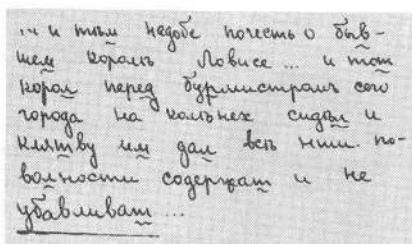 ... и тѣм надобе почесть о быв-
шем королѣ Ловисе ... и тот
корол перед бурмистром сего
города на колѣнех сидѣл и
клятву им дал всѣ нти. по-
волности содержат и не
убавливат ...